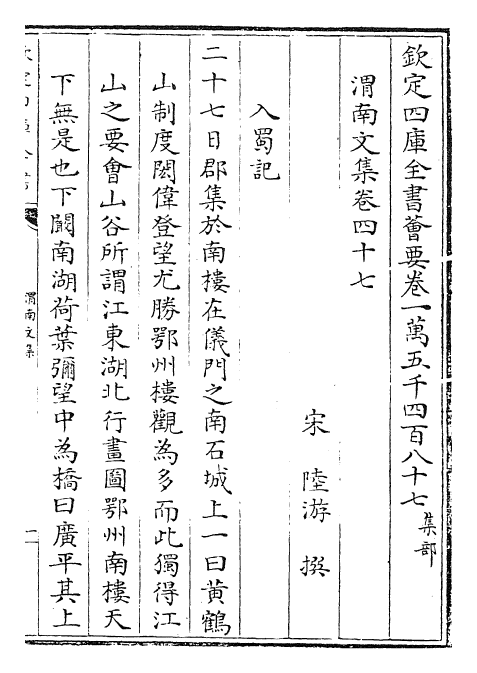 欽定四庫全書薈要卷一萬五千四百八十七 集部
渭南文集卷四十七
宋 陸游 撰
入蜀記
二十七日郡集於南樓在儀門之南石城上一曰黃鶴
山制度閎偉登望尤勝鄂州樓觀為多而此獨得江
山之要會山谷所謂江東湖北行畫圖鄂州南樓天
下無是也下闞南湖荷葉彌望中為橋曰廣平其上
渭南文集
一